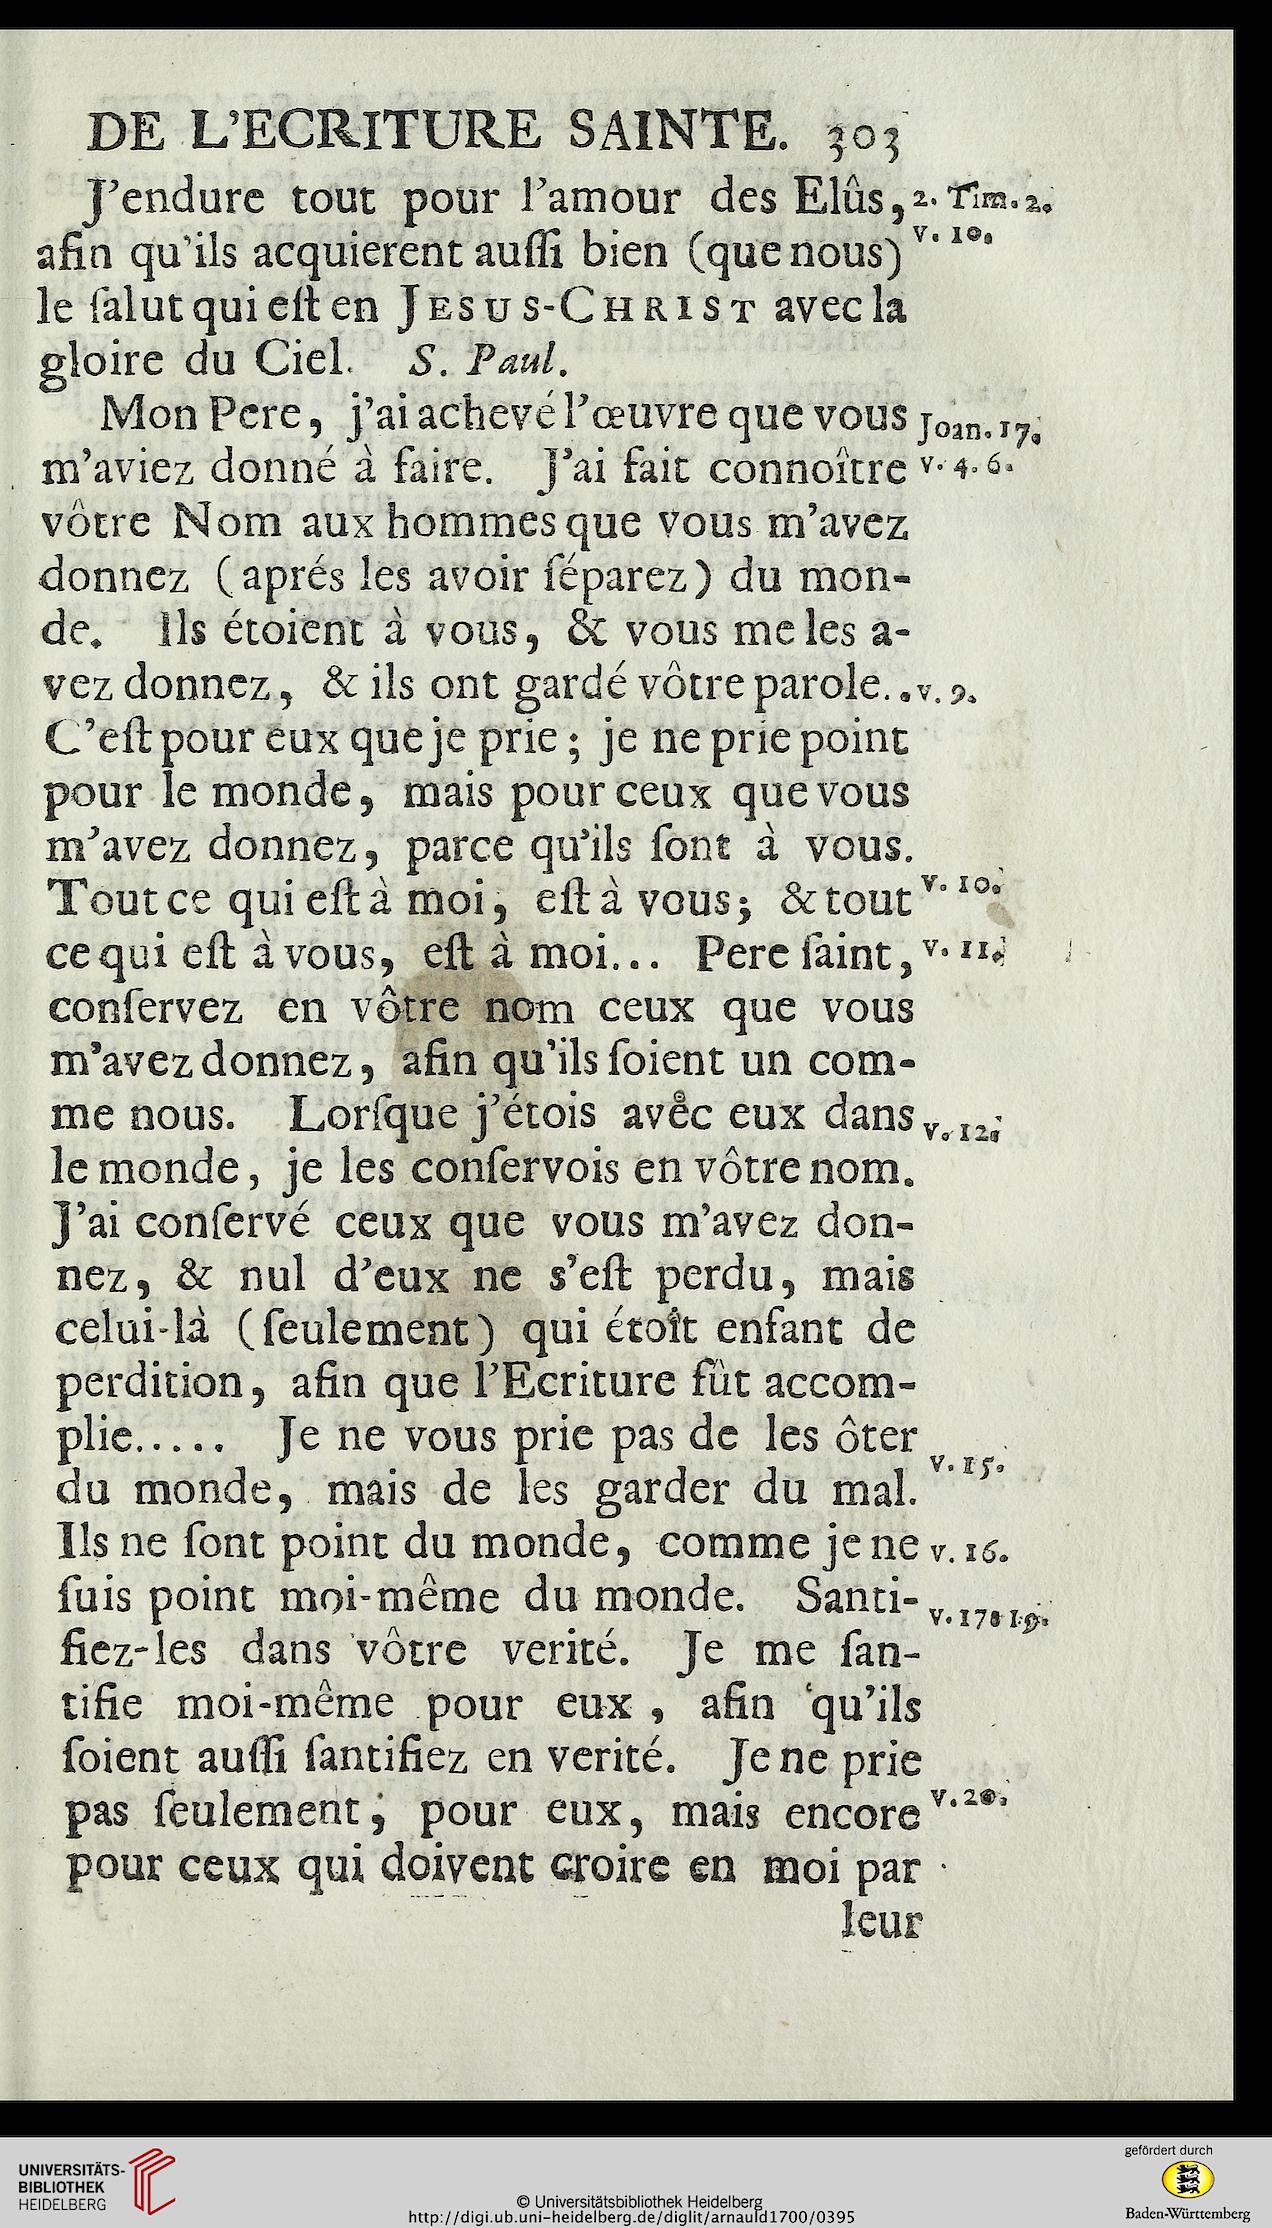 DE L'ECRITURE SAINTE. 303
J'endure tout pour l'amour des Elûs, 2. Tim. 2.
afin qu'ils acquierent auſſi bien (que nous) v. 10.
le ſalut qui eſt en JESUS-CHRIST avec la
gloire du Ciel. S. Paul.
Mon Pere, j'ai achevé l'œuvre que vous Joan. 17.
m'aviez donné à faire. J'ai fait connoître v. 4. 6.
vôtre Nom aux hommes que vous m'avez
donnez (aprés les avoir ſéparez) du mon-
de. Ils étoient à vous, & vous me les a-
vez donnez, & ils ont gardé vôtre parole.. v. 9.
C'eſt pour eux que je prie; je ne prie point
pour le monde, mais pour ceux que vous
m'avez donnez, parce qu'ils ſont à vous.
Tout ce qui eſt à moi, eſt à vous; & tout v. 10.
ce qui eſt à vous, eſt à moi... Pere ſaint, v. 11.
conſervez en vôtre nom ceux que vous
m'avez donnez, afin qu'ils ſoient un com-
me nous. Lorſque j'étois avec eux dans v. 12.
le monde, je les conſervois en vôtre nom.
J'ai conſervé ceux que vous m'avez don-
nez, & nul d'eux ne s'eſt perdu, mais
celui-là (ſeulement) qui étoit enfant de
perdition, afin que l'Ecriture fût accom-
plie..... Je ne vous prie pas de les ôter
du monde, mais de les garder du mal. v. 15.
Ils ne ſont point du monde, comme je ne v. 16.
ſuis point moi-même du monde. Santi- v. 17. 19.
fiez-les dans vôtre verité. Je me ſan-
tifie moi-même pour eux, afin qu'ils
ſoient auſſi ſantifiez en verité. Je ne prie
pas ſeulement; pour eux, mais encore v. 20.
pour ceux qui doivent croire en moi par
leur
UNIVERSITÄTS-
BIBLIOTHEK
HEIDELBERG
© Universitätsbibliothek Heidelberg
http://digi.ub.uni-heidelberg.de/diglit/arnauld1700/0395
gefördert durch
Baden-Württemberg